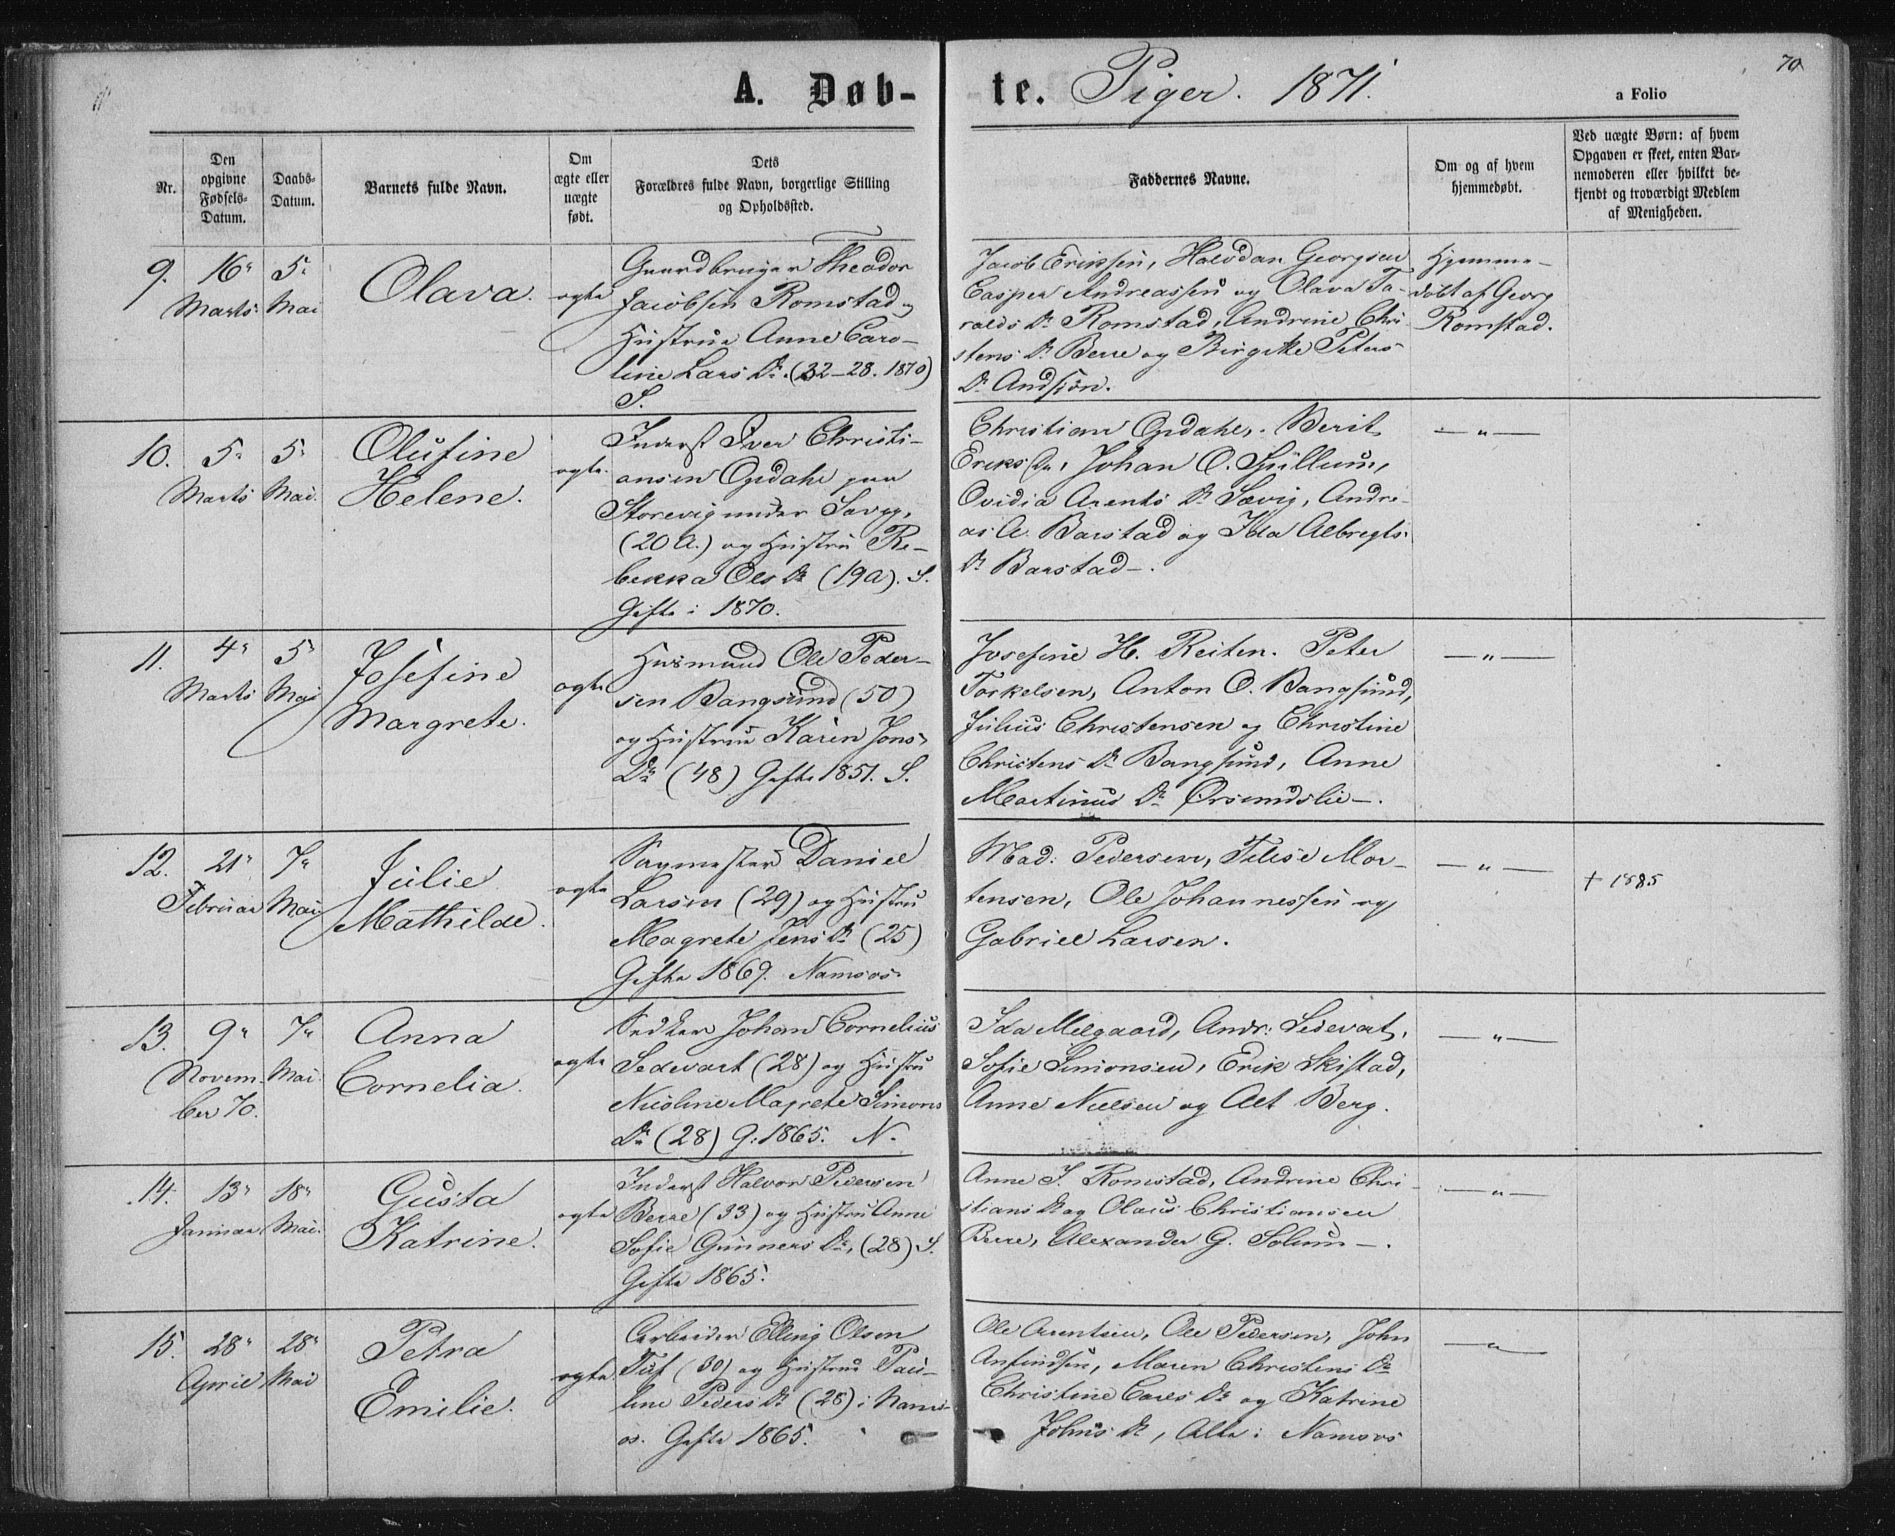 A. Døb- te. Piger. 1871.
a Folio
70
Nr.
Den opgivne Fødsels-Datum.
Daabs-Datum.
Barnets fulde Navn.
Om ægte eller uægte født.
Dets Forældres fulde Navn, borgerlige Stilling og Opholdssted.
Faddernes Navne.
Om og af hvem hjemmedøbt.
Ved uægte Børn: af hvem Opgaven er skeet, enten Barnemoderen eller hvilket bekjendt og troværdigt Medlem af Menigheden.
9.
16
Marts
5
Mai
Olava.
ægte
Gaardbruger Theodor
Jacobsen Romstad og
Hustrue Anne Caro-
line Lars Dr. (32-28. 1870)
S.
Jacob Eriksen, Halvdan Georgsen
Casper Andreassen og Olava Ta-
ralds Dr Romstad, Andrine Chri-
stens Dr Berre og Birgitte Peters
Dr Andsjøn.
Hjemme-
døbt af Georg
Romstad.
10.
5
Marts
5
Mai.
Olufine
Helene.
ægte.
Inderst Iver Christi-
ansen Opdahl paa
Storevig under Savig,
(20 A.) og Hustru Re-
bekka Ols Dr (19 a). S.
Gifte i 1870.
Christian Opdahl, Berit
Eriks Dr, Johan O. Spillum,
Ovidia Arents Dr Sævig, Andre-
as A. Barstad og Ida Albregts
Dr Barstad-.
— " —
11.
4
Marts
5
Mai
Josefine
Margrete.
ægte
Husmand Ole Peder-
sen Bangsund (50)
og Hustrue Karen Jons
Dr (48) Gifte 1851. S.
Josefine H. Reiten. Peter
Torkelsen, Anton O. Bangsund,
Julius Christensen og Christine
Christens Dr Bangsund, Anne
Martinus Dr Ørsundslie-.
— " —
12.
21
Februar
7
Mai
Julie
Mathilde.
ægte
Sagmester Daniel
Larsen (29) og Hustru
Magrete Jens Dr (25)
Gifte 1869. Namsos
Mad. Pedersen, Filise Mor-
tensen, Ole Johannessen og
Gabriel Larsen.
— " —
† 1885
13.
9
Novem-
ber 70.
7
Mai.
Anna
Cornelia.
ægte
Johan Cornelius
Sedevart (28) og Hustru
Nicoline Magrete Simons
Dr (28) G: 1865. N.
Ida Melgaard, Andr: Sedevart,
Sofie Simonsen, Erik Skistad,
Anne Nielsen og Alt Berg.
— " —
14.
13
Januar
18
Mai.
Gusta
Katrine.
ægte
Inderst Halvor Pedersen
Berre (33) og Hustru Anne
Sofie Gunners Dr, (28) S.
Gifte 1865.
Anne J. Romstad, Andrine Chri-
stians Dr og Olaus Christiansen
Berre, Alexander G. Solum-.
— " —
15.
28
April
28
Mai
Petra
Emilie.
ægte
Arbeider Elling Olsen
Tuf (30) og Hustrue Pau-
line Peders Dr (28) i Nams-
os. Gifte 1865.
Ole Arentsen, Ole Pedersen, John
Anfindsen, Maren Christens Dr
Christine Carls Dr og Katrine
Johns Dr, Alle i Namsos
— " —